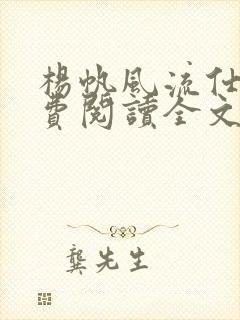 楊帆風流仕
費閱讀全文
龔先生